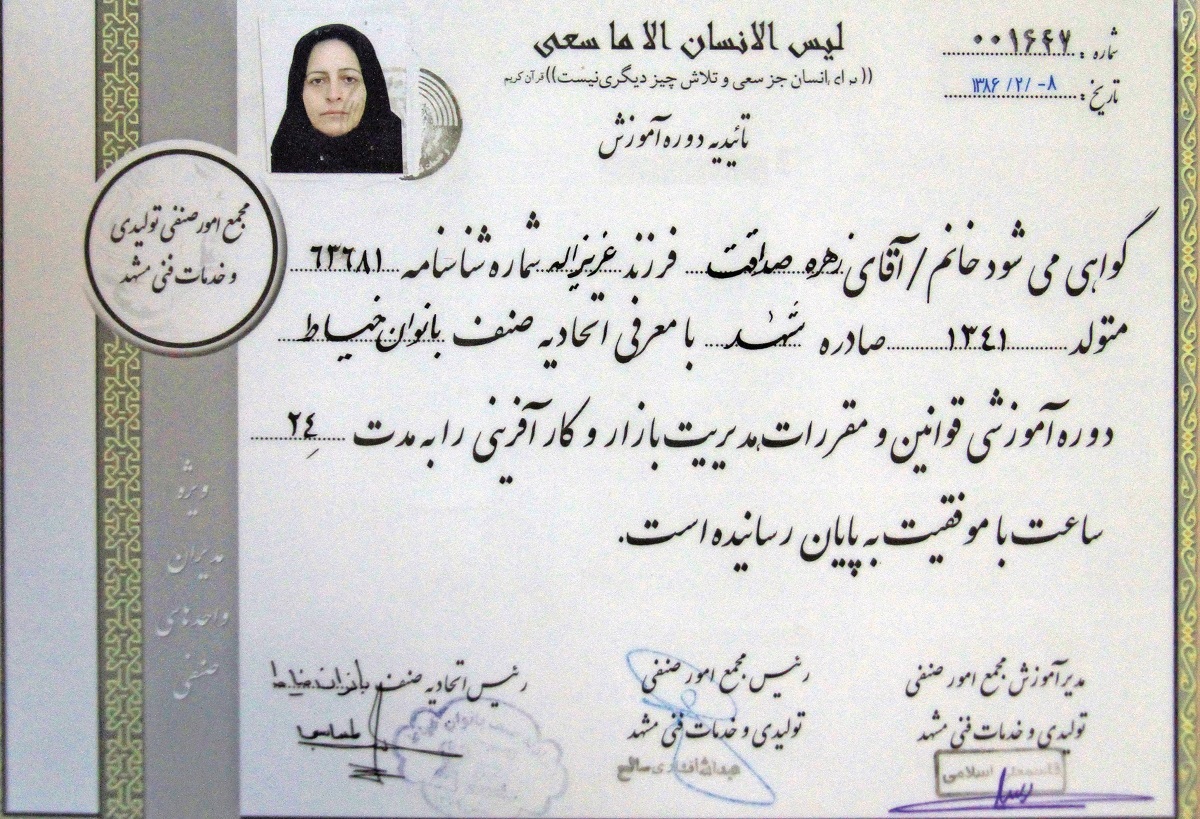 لیس الانسان الا ما سعی
((برای انسان جز سعی و تلاش چیز دیگری نیست)) قرآن کریم
شماره : ۰۰۱۶۴۷
تاریخ : ۱۳۸۶/۲/-۸
تائیدیه دوره آموزش
مجمع امور صنفی تولیدی
و خدمات فنی مشهد
گواهی می شود خانم / آقای زهره صداقت فرزند عزیزاله شماره شناسنامه ٦٣٦٨١
متولد ١٣٤١ صادره مشهد با معرفی اتحادیه صنف بانوان خیاط
دوره آموزشی قوانین و مقررات، مدیریت بازار و کارآفرینی را به مدت ٢٤
ساعت با موفقیت به پایان رسانیده است.
ویژه
مدیران
واحدهای
صنفی
مدیر آموزش مجمع امور صنفی
تولیدی و خدمات فنی مشهد
اسلامی
رئیس مجمع امور صنفی
تولیدی و خدمات فنی مشهد
رئیس اتحادیه صنف بانوان خیاط